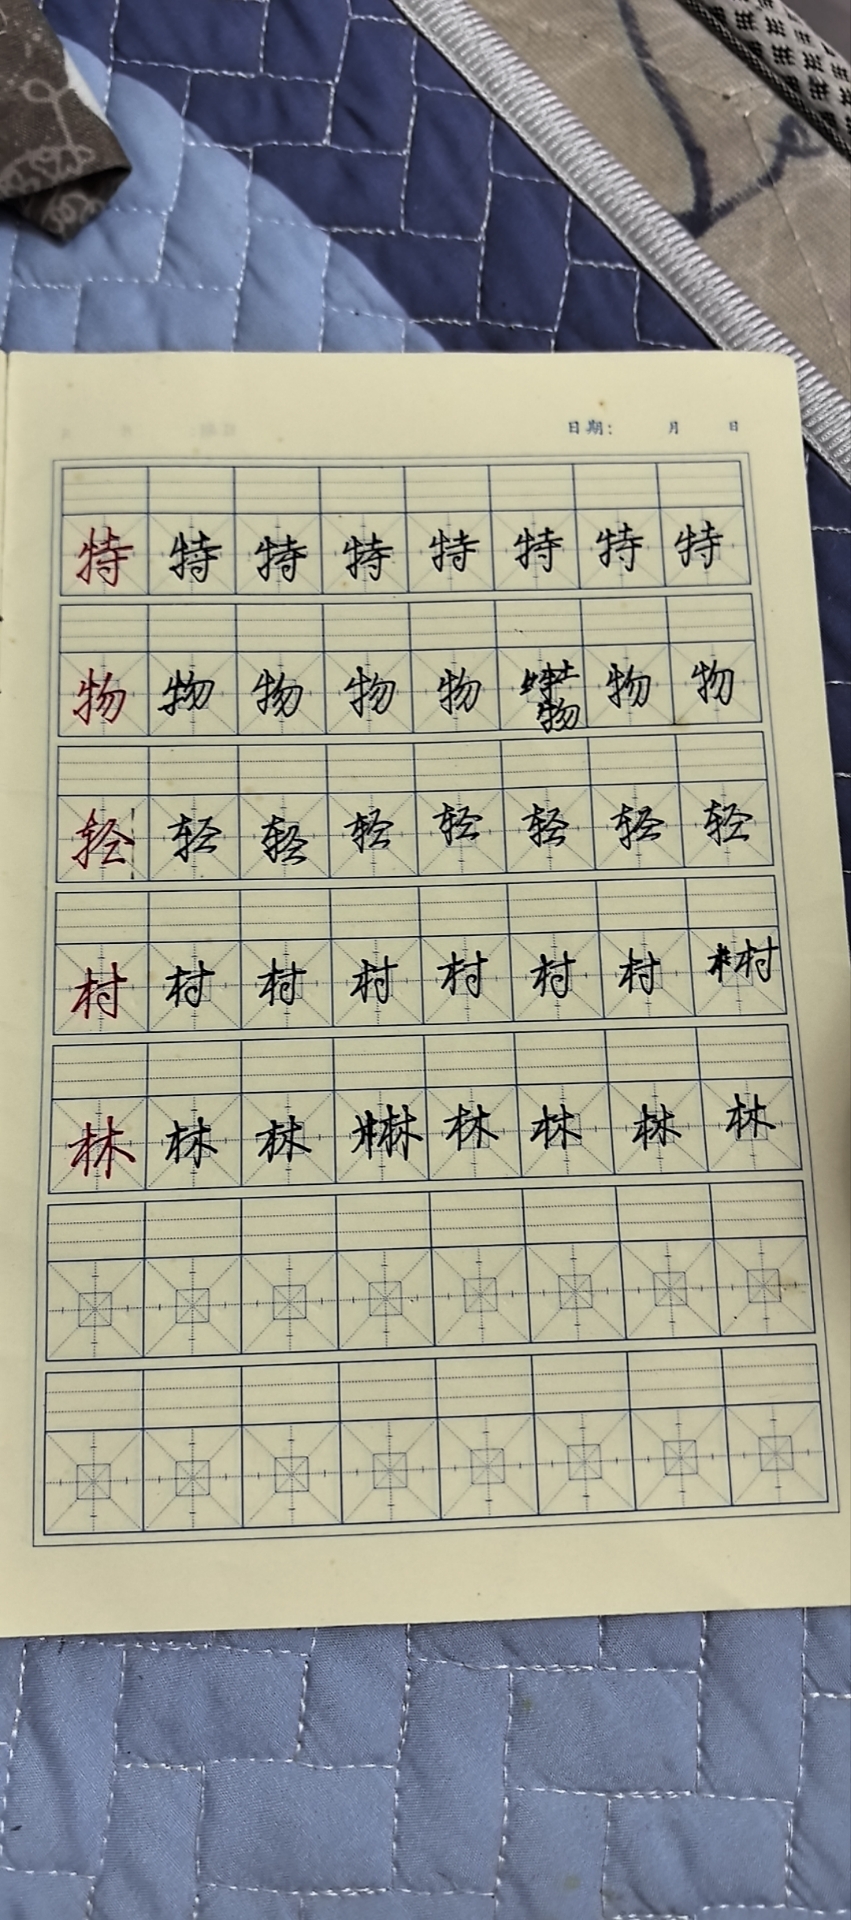 日期： 月 日
特 特 特 特 特 特 特 特
物 物 物 物 物 物 物 物
轻 轻 轻 轻 轻 轻 轻 轻
村 村 村 村 村 村 村 村
林 林 林 林 林 林 林 林